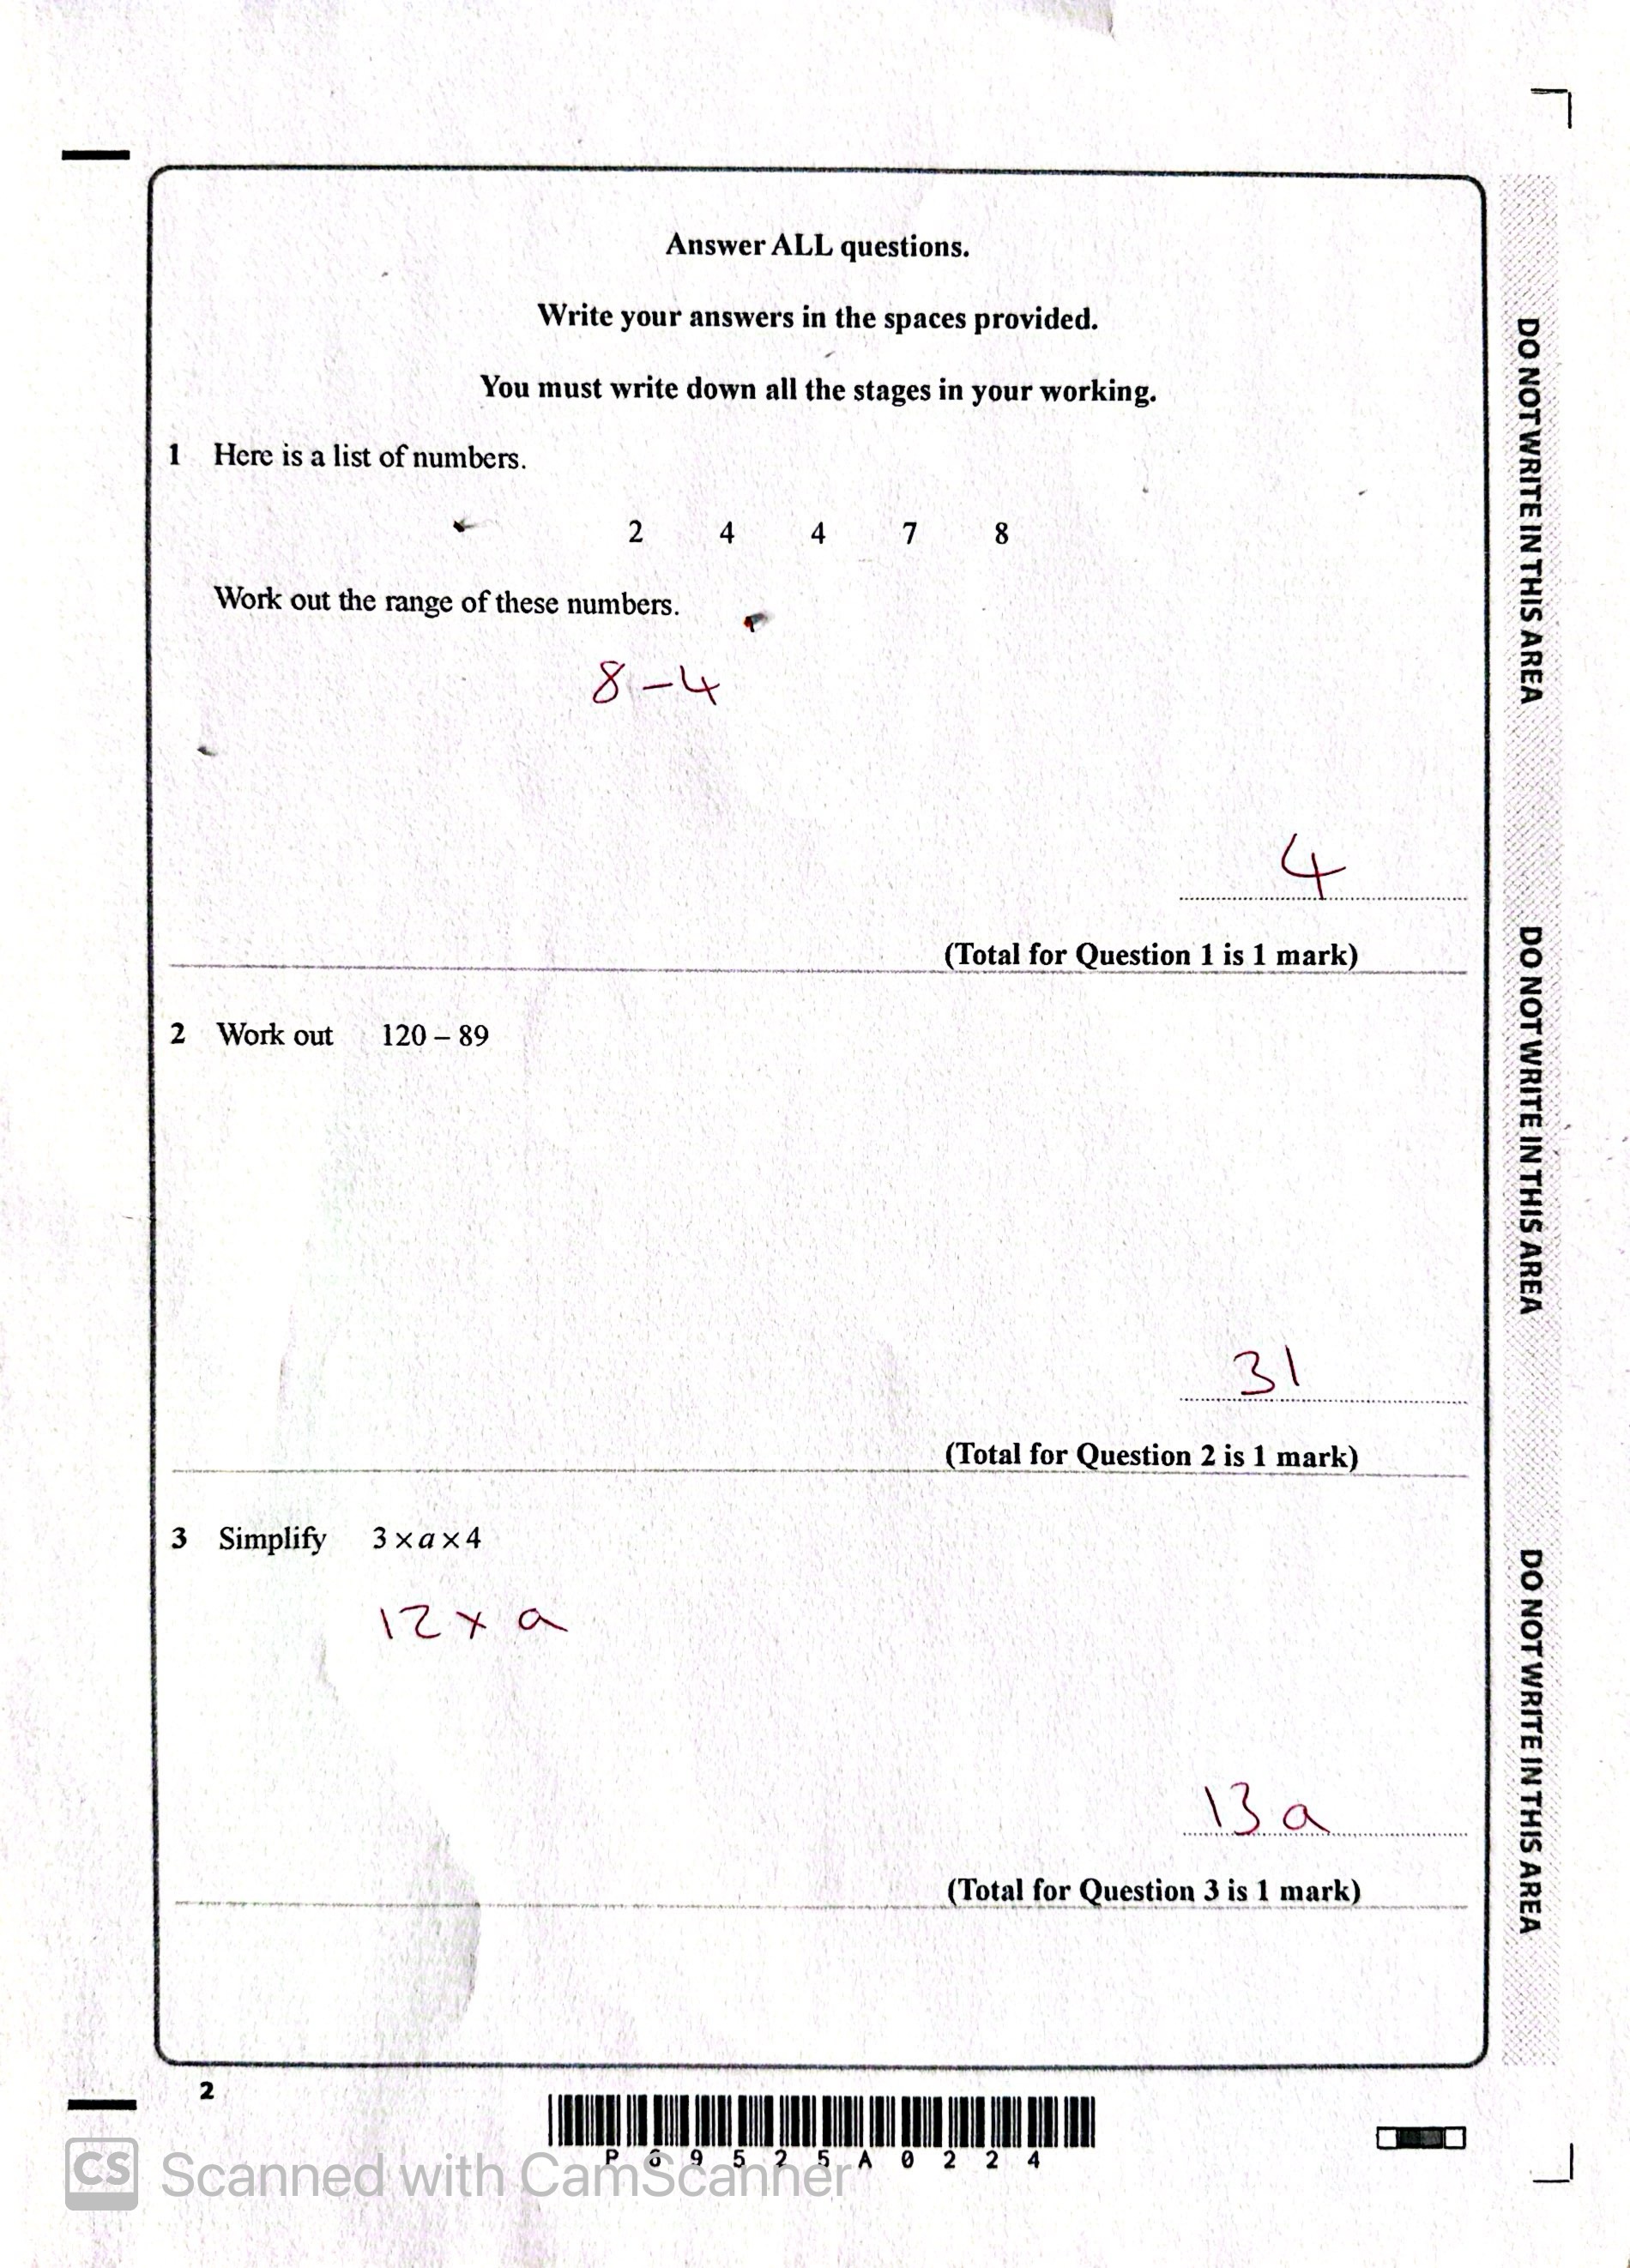 Answer ALL questions.
Write your answers in the spaces provided.
You must write down all the stages in your working.
1 Here is a list of numbers.
2 4 4 7 8
Work out the range of these numbers.
8 – 4
4
(Total for Question 1 is 1 mark)
2 Work out 120 – 89
31
(Total for Question 2 is 1 mark)
3 Simplify 3 × a × 4
12 × a
13 a
(Total for Question 3 is 1 mark)
2
P 6 9 5 2 5 A 0 2 2 4
DO NOT WRITE IN THIS AREA
DO NOT WRITE IN THIS AREA
DO NOT WRITE IN THIS AREA
CS Scanned with CamScanner